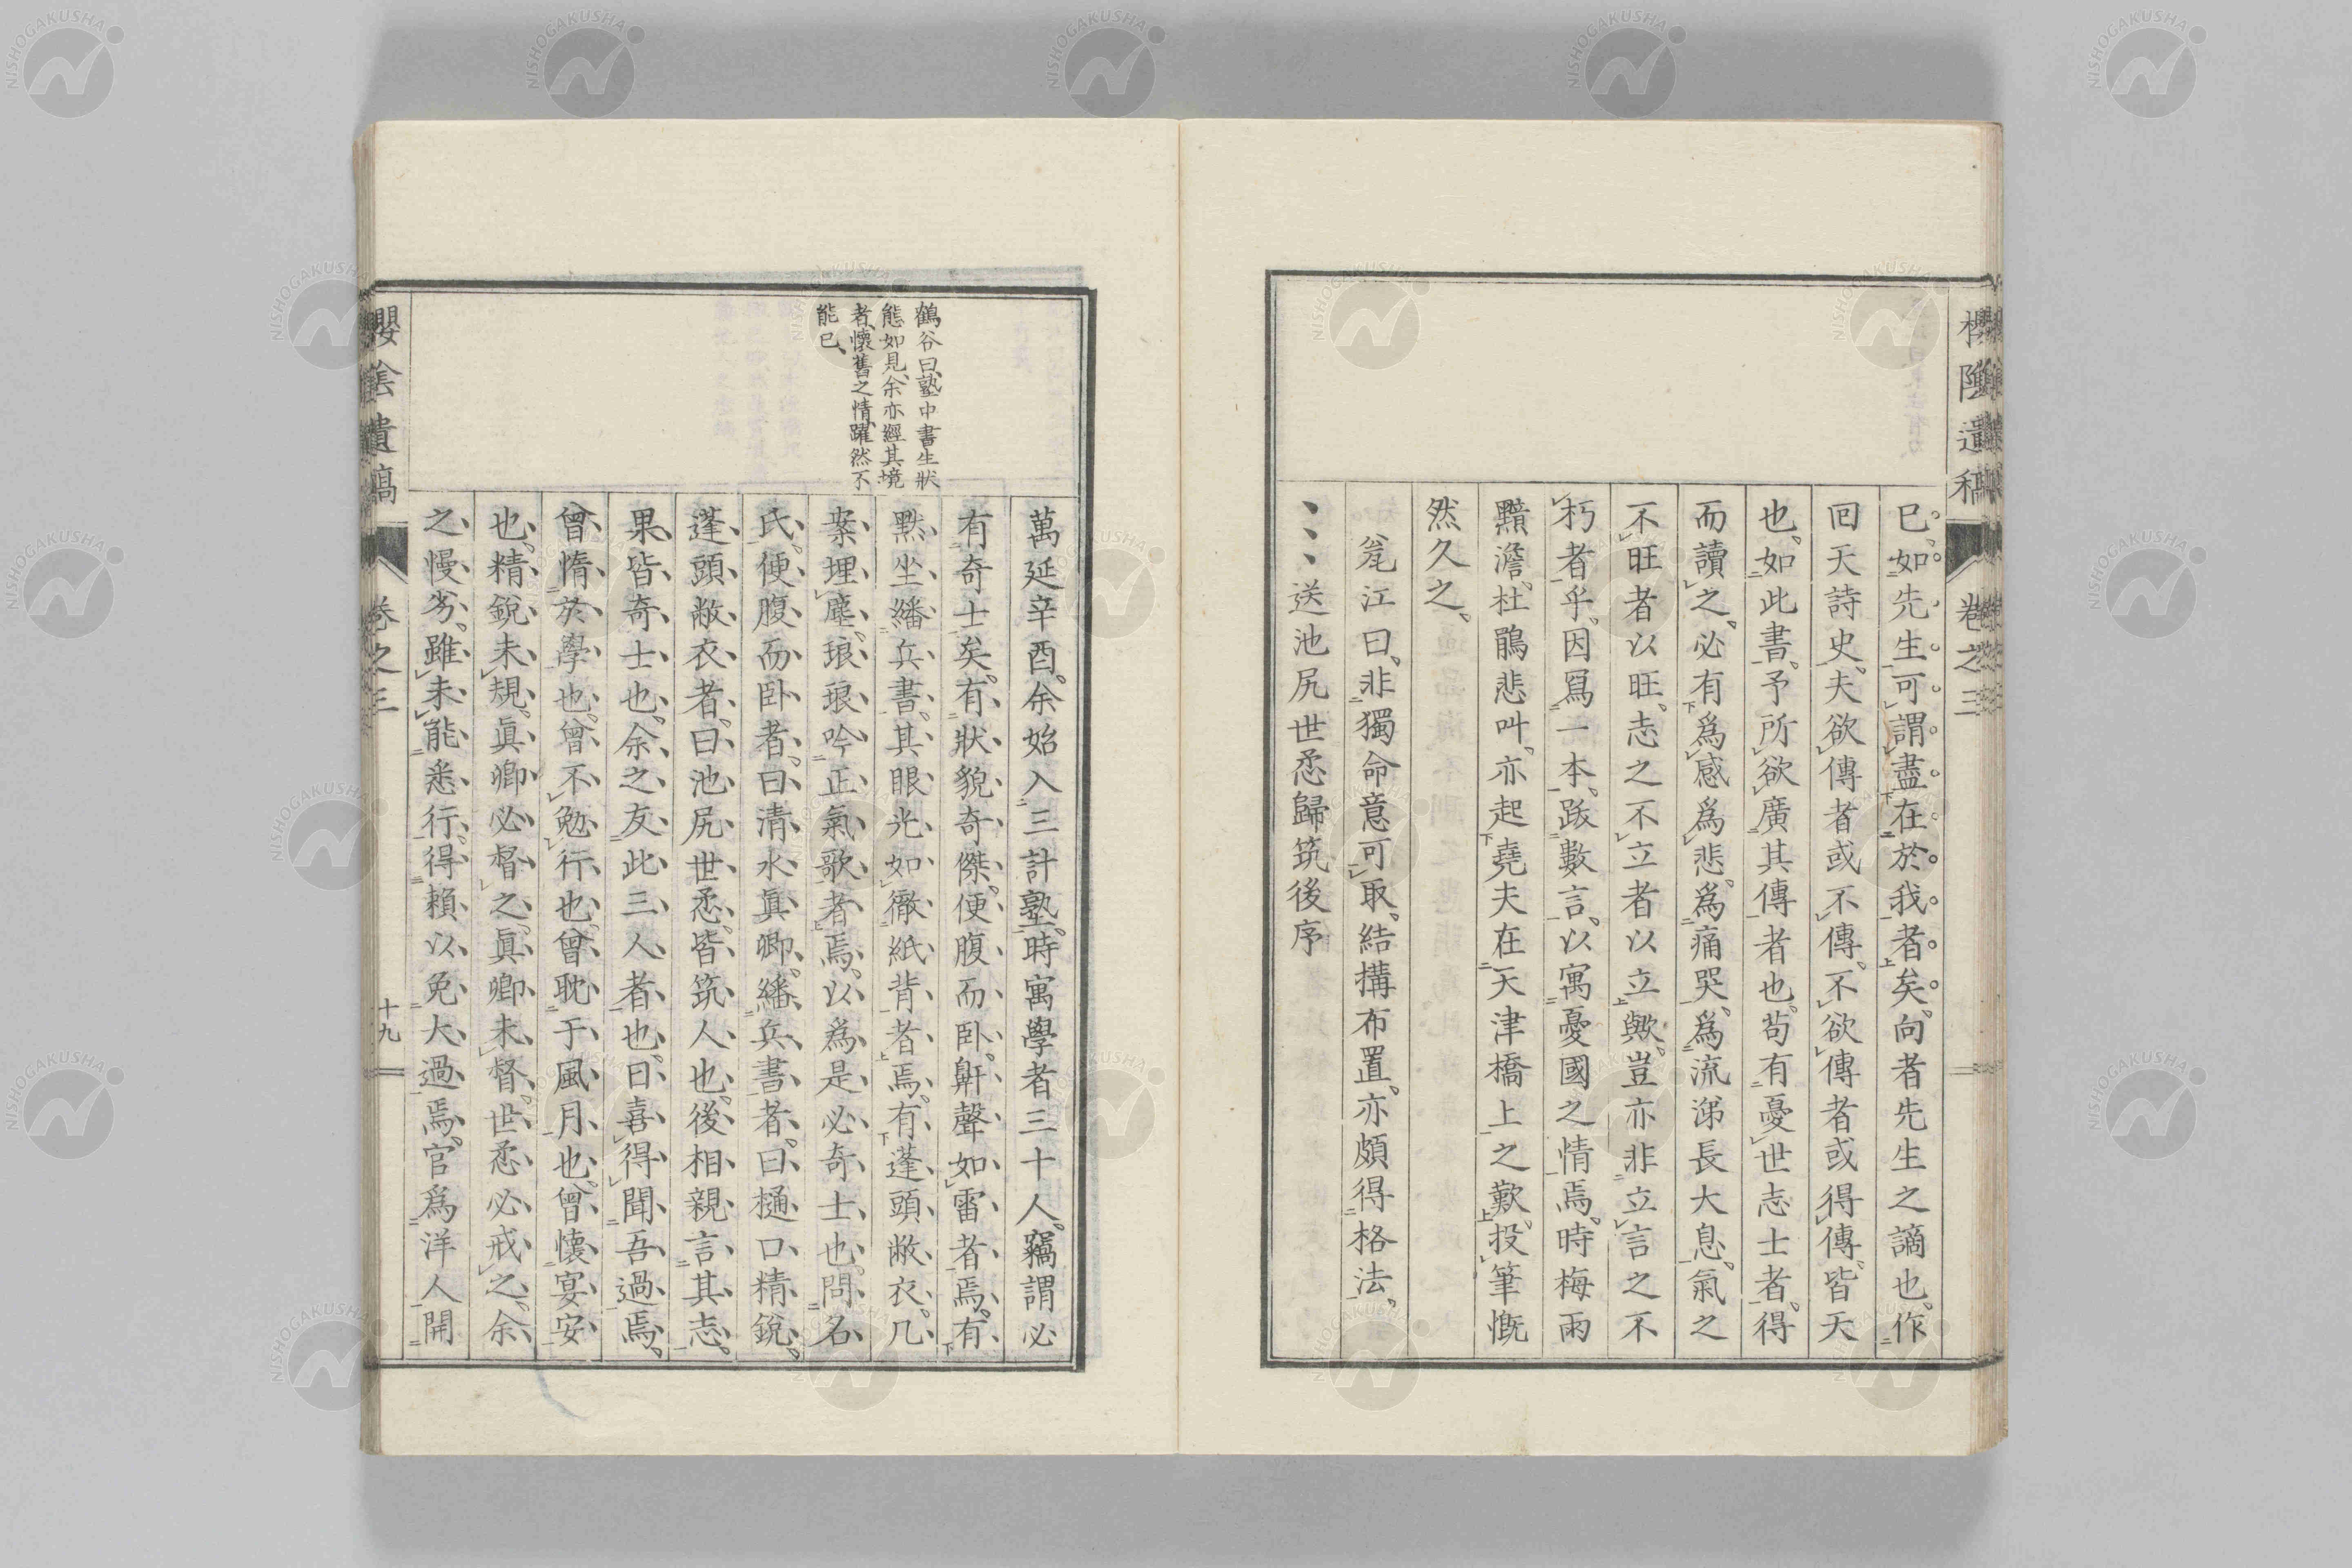 櫻陰遺稿
卷之三
已、如先生可謂盡在於我者矣、向者先生之謫也、作
回天詩史、夫欲傳者或不傳、不欲傳者或得傳、皆天
也、如此書、予所欲廣其傳者也、苟有憂世志士者、得
而讀之、必有爲感爲悲、爲痛哭、爲流涕長大息、氣之
不旺者以旺、志之不立者以立歟、豈亦非立言之不
朽者乎、因寫一本、跋數言、以寓憂國之情焉、時梅雨
黯澹、杜鵑悲叫、亦起堯夫在天津橋上之歎、投筆慨
然久之、
瓮江曰、非獨命意可取、結構布置、亦頗得格法、
、、、送池尻世悉歸筑後序
鶴谷曰、塾中書生狀
態如見、余亦經其境
者、懷舊之情、躍然不
能已、
萬延辛酉、余始入三計塾、時寓學者三十人、竊謂必
有奇士矣、有狀貌奇傑、便腹而臥、鼾聲如雷者焉、有
默坐繙兵書、其眼光如徹紙背者焉、有蓬頭敝衣、几
案埋塵、琅琅吟正氣歌者焉、以爲是必奇士也、問名
氏、便腹而臥者、曰清水眞卿、繙兵書者、曰樋口精銳、
蓬頭敝衣者、曰池尻世悉、皆筑人也、後相親言其志、
果皆奇士也、余之友此三人者也、曰喜得聞吾過焉、
曾惰於學也、曾不勉行也、曾耽于風月也、曾懷宴安
也、精銳未規、眞卿必督之、眞卿未督、世悉必戒之、余
之慢劣、雖未能悉行、得賴以免大過焉、官爲洋人開
櫻陰遺稿
卷之三
十九